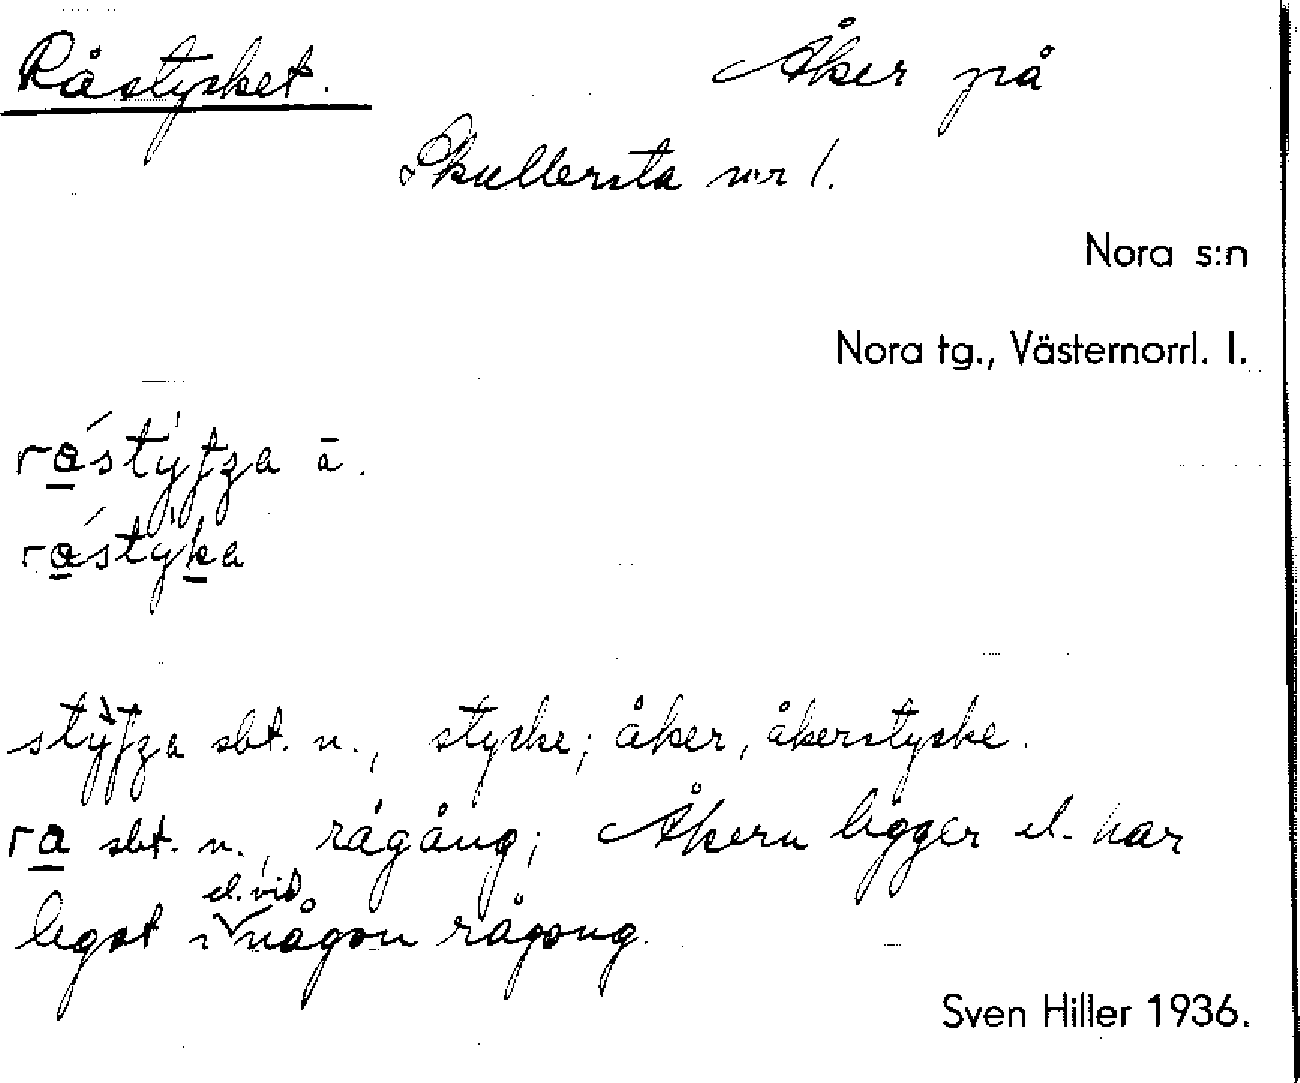 Råstycket. Åker på
Skullersta nr 1.
Nora s:n
Nora tg., Västernorrl. l.
råstýtza å.
råstýka
stỳtza sbt. n., stycke; åker, åkerstycke.
rå sbt. n., rågång; Åkern ligger el. har
legat i el. vid någon rågång.
Sven Hiller 1936.